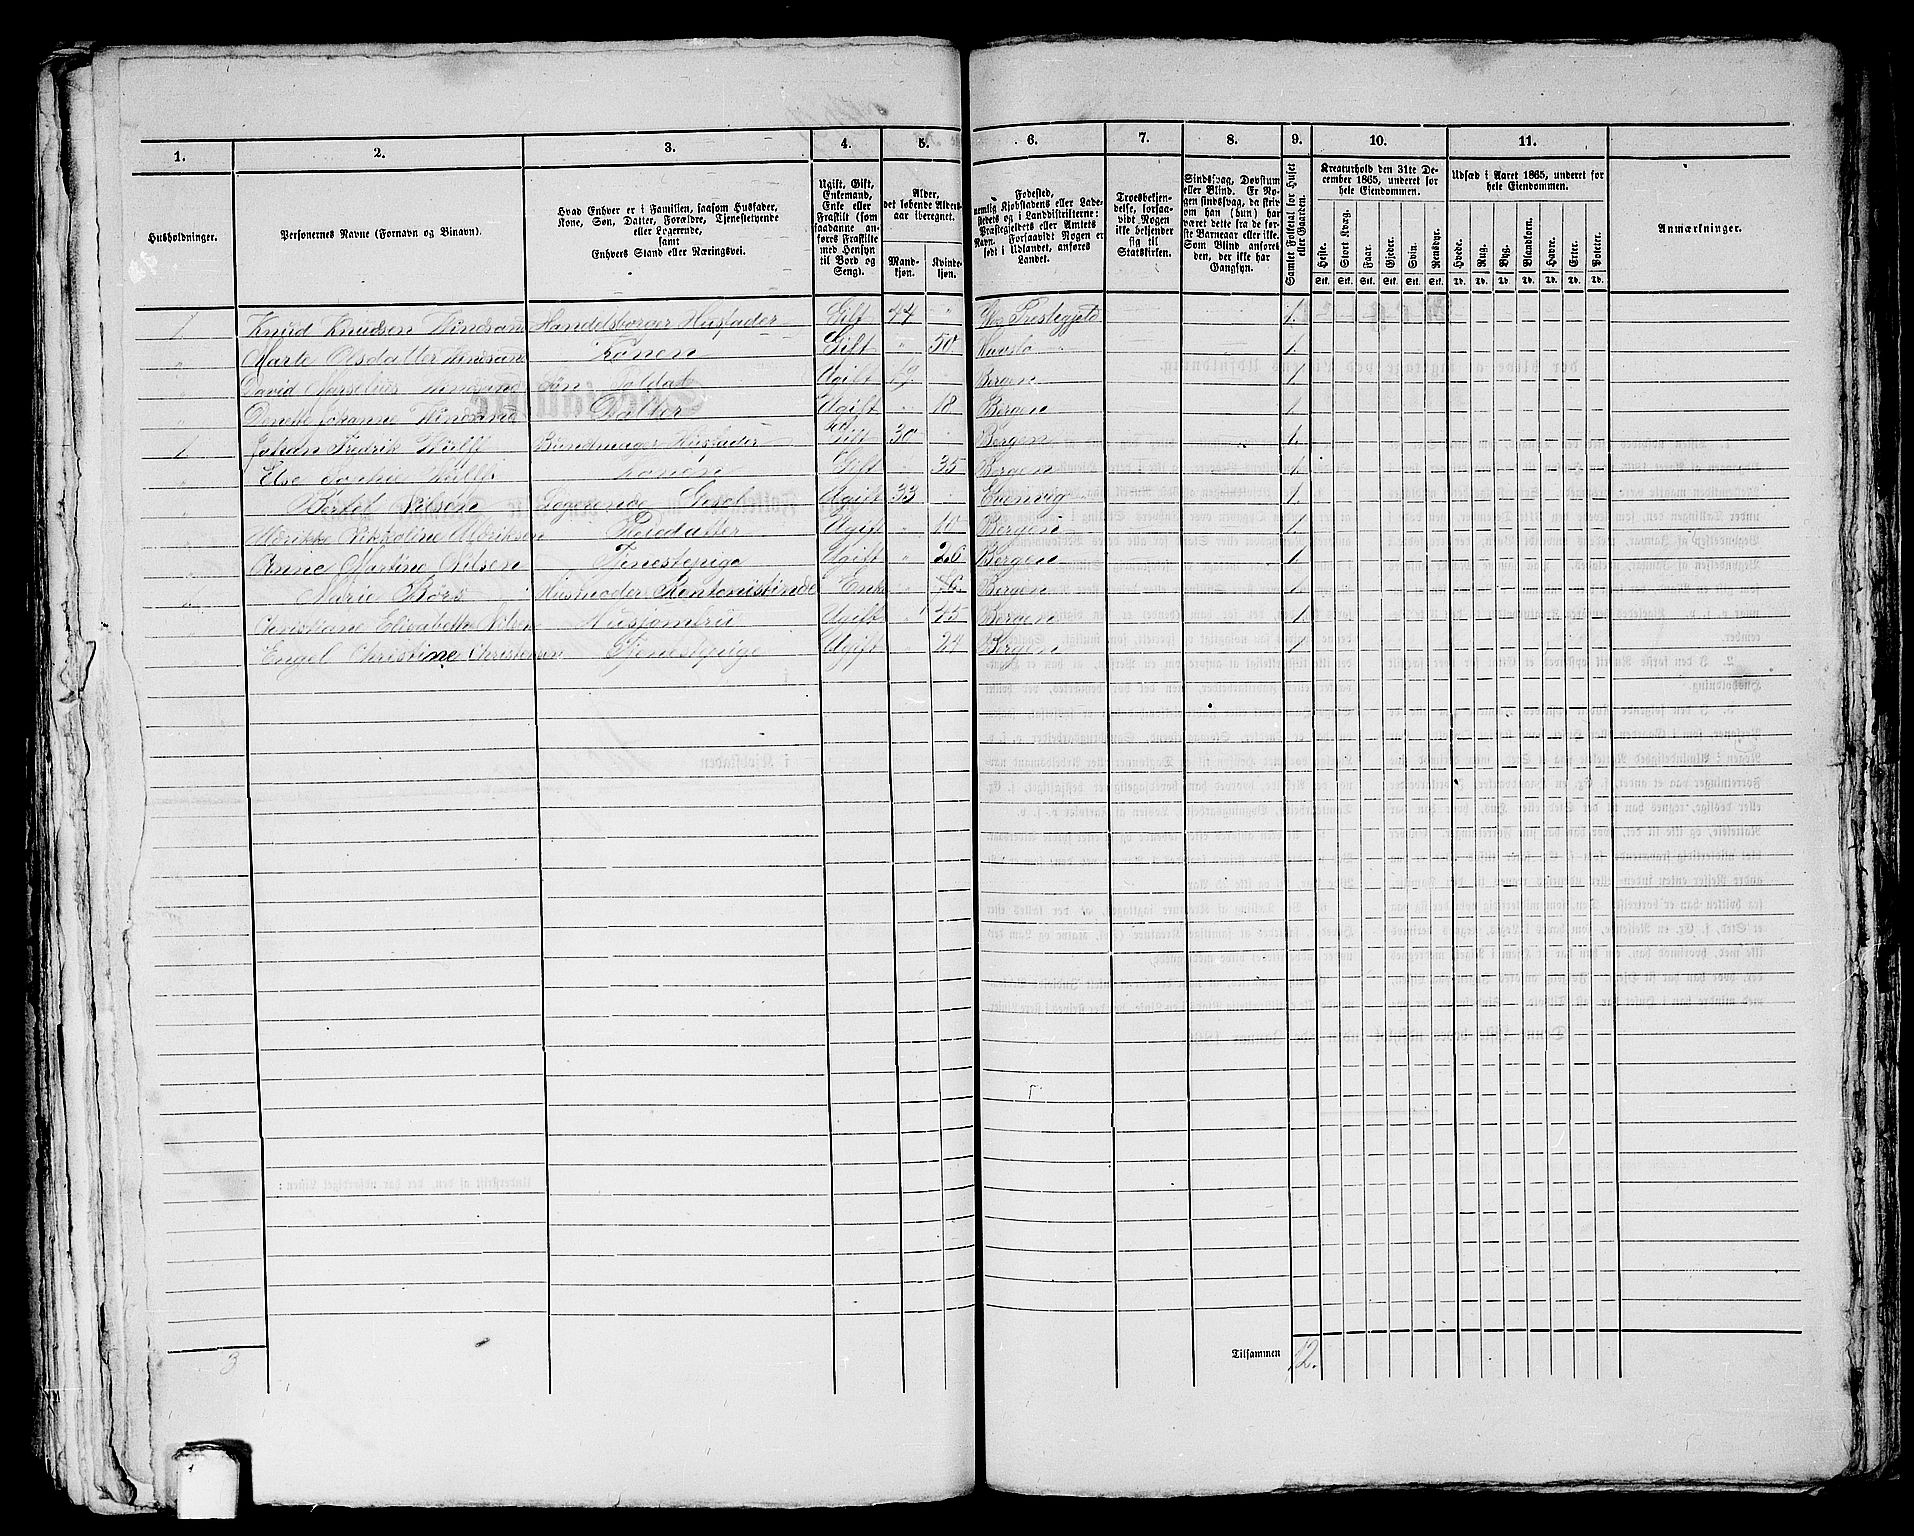 1. 2. 3. 4. 5. 6. 7. 8. 9. 10. 11.
Husholdninger.
Personernes Navne (Fornavn og Binavn).
Hvad Enhver er i Familien, saasom Husfader,
Kone, Søn, Datter, Forældre, Tjenestetyende
eller Logerende,
samt
Enhvers Stand eller Næringsvei.
Ugift, Gift,
Enkemand,
Enke eller
Fraskilt (som
saadanne an-
føres Fraskilte
med Hensyn
til Bord og
Seng).
Alder,
det løbende Alders-
aar iberegnet.
Mand-
kjøn.
Kvinde-
kjøn.
Fødested,
nemlig Kjøbstadens eller Lade-
stedets og i Landdistrikterne:
Præstegjeldets eller Amtets
Navn. Forsaavidt Nogen er
født i Udlandet, anføres
Landet.
Troesbekjen-
delse, forsaa-
vidt Nogen
ikke bekjender
sig til
Statskirken.
Sindssvag, Døvstum
eller Blind. Er No-
gen sindssvag, da skriv
om han (hun) har
været dette fra de før-
ste Barneaar eller ikke.
Som Blind anføres
den, der ikke har
Gangsyn.
Samlet Folketal for Huset
eller Gaarden.
Kreaturhold den 31te De-
cember 1865, underet for
hele Eiendommen.
Heste. Stort Kvæg. Faar. Gjeder. Svin. Rensdyr.
Stk. Stk. Stk. Stk. Stk. Stk.
Udsæd i Aaret 1865, underet for
hele Eiendommen.
Hvede. Rug. Byg. Blandkorn. Havre. Erter. Poteter.
Td. Td. Td. Td. Td. Td. Td.
Anmærkninger.
1 Knud Knudsen Handelsborger Husfader Gift 44 " Præstegjeld 1.
" Marte Olsdatter Konen Gift " 50. 1.
" David Søn Soldat Ugift 19. Bergen 1
" Johanne Datter Ugift " 18 Bergen 1
1 Johan Fredrik Wulff Bundmager Husfader Gift 30 Bergen 1.
" Else Sophie Wulff Konen Gift " 35 Bergen 1.
" Bertel Nilsen Logerende Svend Ugift 33 Evenvig 1.
" Ulrikke Nikkoline Ulriksen Pleiedatter Ugift " 10 Bergen 1
" Anne Martine Nilsen Tjenestepige Ugift " 26 Bergen 1
1 Marie Børs Husmoder Enke " 76. Bergen 1.
" Christiane Elisabeth Olsen Husjomfru Ugift " 45 Bergen 1.
" Engel Christine Christensen Tjenestepige Ugift " 24 Bergen 1
3 Tilsammen 12.